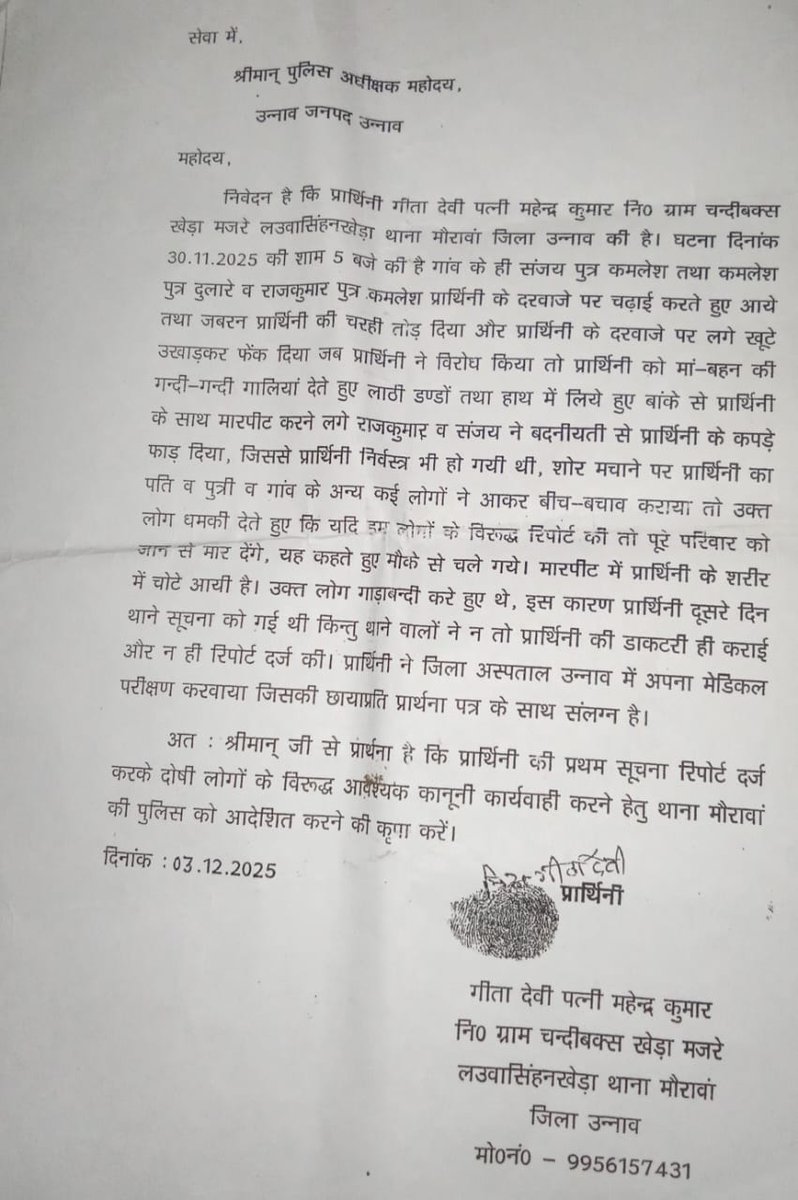 सेवा में,
श्रीमान् पुलिस अधीक्षक महोदय,
उन्नाव जनपद उन्नाव
महोदय,
निवेदन है कि प्रार्थिनी गीता देवी पत्नी महेन्द्र कुमार नि0 ग्राम चन्दीबक्स
खेड़ा मजरे लउवासिंहनखेड़ा थाना मौरावां जिला उन्नाव की है। घटना दिनांक
30.11.2025 की शाम 5 बजे की है गांव के ही संजय पुत्र कमलेश तथा कमलेश
पुत्र दुलारे व राजकुमार पुत्र कमलेश प्रार्थिनी के दरवाजे पर चढ़ाई करते हुए आये
तथा जबरन प्रार्थिनी की चरही तोड़ दिया और प्रार्थिनी के दरवाजे पर लगे खूटे
उखाड़कर फेंक दिया जब प्रार्थिनी ने विरोध किया तो प्रार्थिनी को मां-बहन की
गन्दी-गन्दी गालियां देते हुए लाठी डण्डों तथा हाथ में लिये हुए बांके से प्रार्थिनी
के साथ मारपीट करने लगे राजकुमार व संजय ने बदनीयती से प्रार्थिनी के कपड़े
फाड़ दिया, जिससे प्रार्थिनी निर्वस्त्र भी हो गयी थी, शोर मचाने पर प्रार्थिनी का
पति व पुत्री व गांव के अन्य कई लोगों ने आकर बीच-बचाव कराया तो उक्त
लोग धमकी देते हुए कि यदि हम लोगों के विरुद्ध रिपोर्ट की तो पूरे परिवार को
जान से मार देंगे, यह कहते हुए मौके से चले गये। मारपीट में प्रार्थिनी के शरीर
में चोटे आयी है। उक्त लोग गाड़ाबन्दी करे हुए थे, इस कारण प्रार्थिनी दूसरे दिन
थाने सूचना को गई थी किन्तु थाने वालों ने न तो प्रार्थिनी की डाकटरी ही कराई
और न ही रिपोर्ट दर्ज की। प्रार्थिनी ने जिला अस्पताल उन्नाव में अपना मेडिकल
परीक्षण करवाया जिसकी छायाप्रति प्रार्थना पत्र के साथ संलग्न है।
अत : श्रीमान् जी से प्रार्थना है कि प्रार्थिनी की प्रथम सूचना रिपोर्ट दर्ज
करके दोषी लोगों के विरुद्ध आवश्यक कानूनी कार्यवाही करने हेतु थाना मौरावां
की पुलिस को आदेशित करने की कृपा करें।
दिनांक : 03.12.2025
गीता देवी
प्रार्थिनी
गीता देवी पत्नी महेन्द्र कुमार
नि0 ग्राम चन्दीबक्स खेड़ा मजरे
लउवासिंहनखेड़ा थाना मौरावां
जिला उन्नाव
मो0नं0 - 9956157431